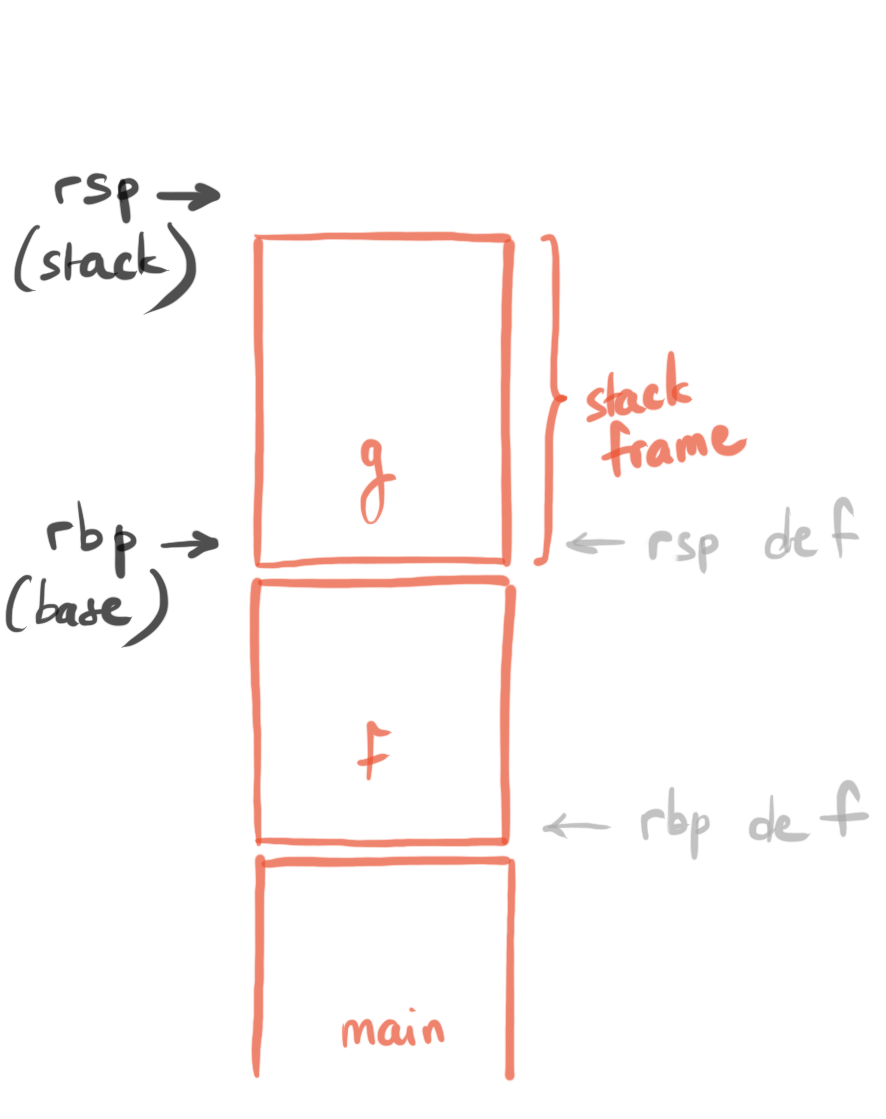 rsp →
(stack)
stack
frame
g
rbp →
(base)
← rsp de f
f
← rbp de f
main